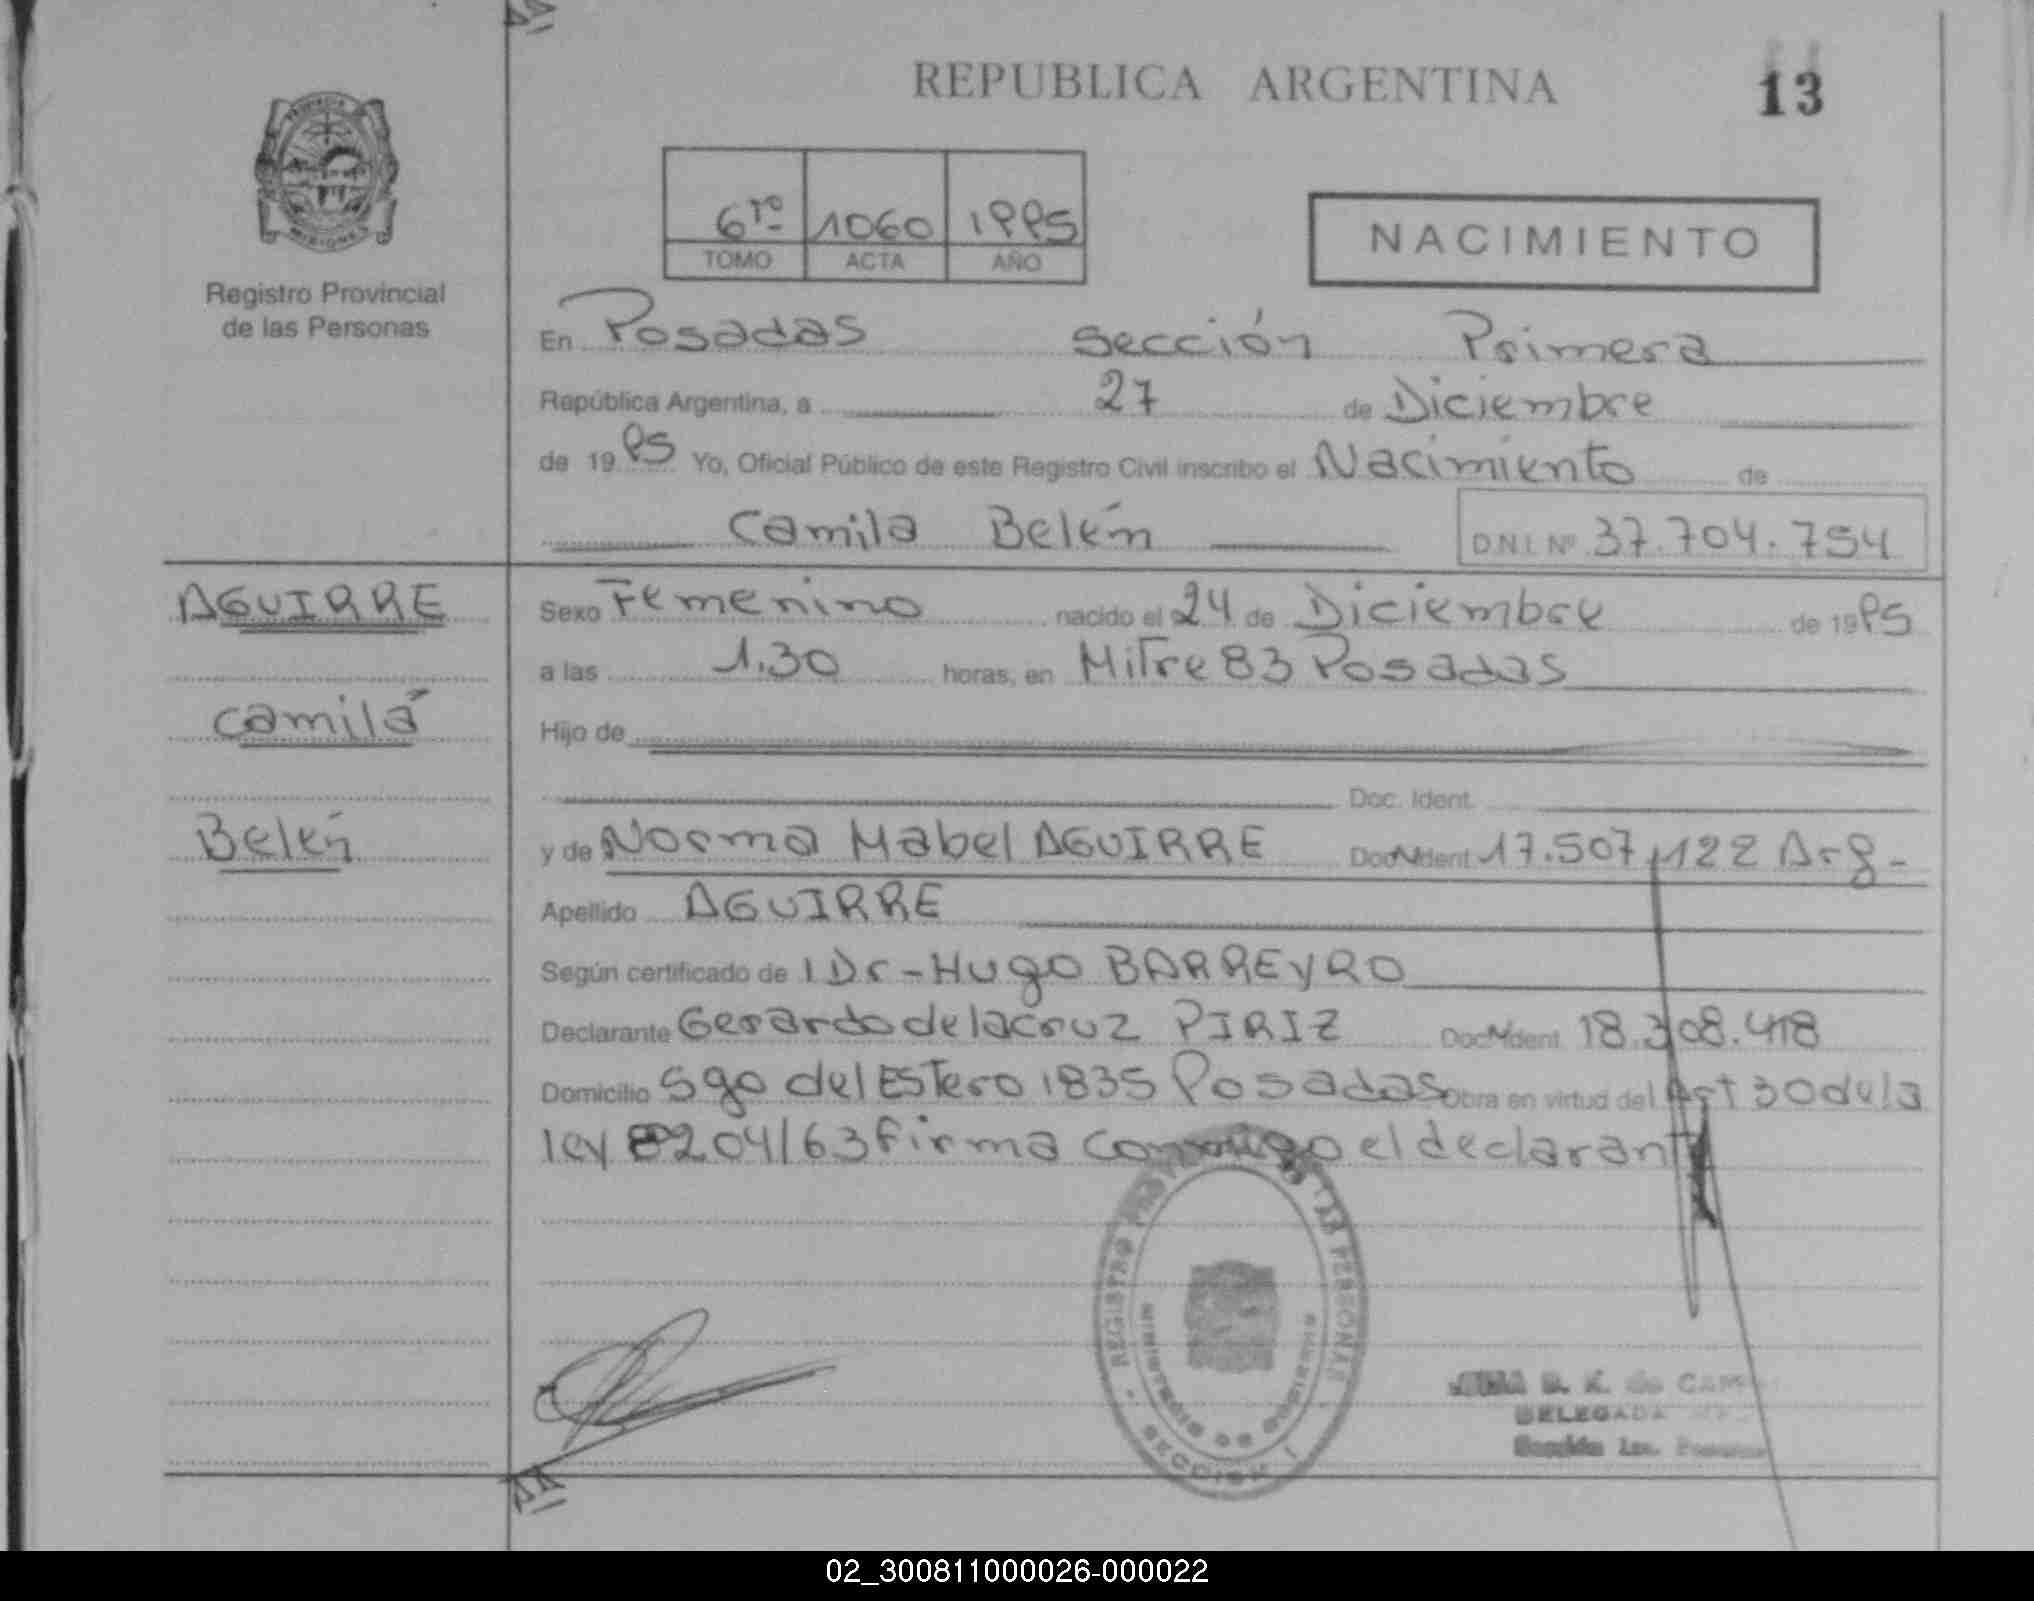 REPUBLICA ARGENTINA
13
PROVINCIA
MISIONES
Registro Provincial
de las Personas
6ro 1060 1995
TOMO ACTA AÑO
NACIMIENTO
En Posadas Sección Primera
República Argentina, a 27 de Diciembre
de 19 95 Yo, Oficial Público de este Registro Civil inscribo el Nacimiento de
Camila Belén
D.N.I. Nº 37.704.754
AGUIRRE
Camila
Belén
Sexo Femenino nacido el 24 de Diciembre de 19 95
a las 1.30 horas, en Mitre 83 Posadas
Hijo de
Doc. Ident.
y de Norma Mabel AGUIRRE Doc. Ident. 17.507.122 Arg-
Apellido AGUIRRE
Según certificado de l Dr-Hugo BARREYRO
Declarante Gerardo de la cruz PIRIZ Doc. Ident. 18.308.418
Domicilio Sgo del Estero 1835 Posadas Obra en virtud del Art 30 de la
ley 8204/63 firma conmigo el declarante
REGISTRO DE LAS PERSONAS
MINISTERIO DE GOBIERNO
SECCION I
B. K. de
DELEGADA
Sección 1ra.
02_300811000026-000022